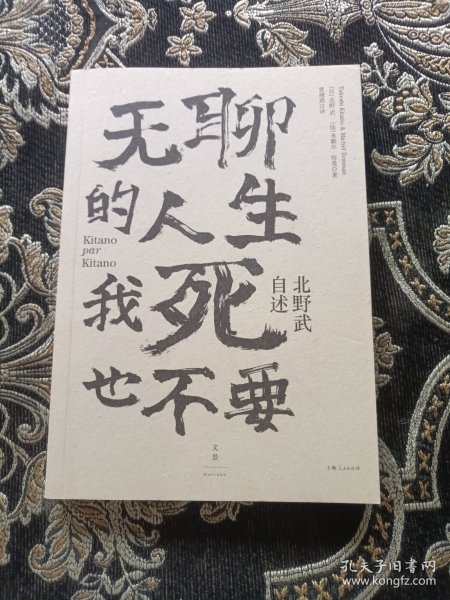 无聊
的人生
我死
也不要
Kitano
par
Kitano
北野武
自述
Takeshi Kitano & Michel Temman
[日]北野武 [法]米歇尔·特曼 著
文景
Horizon
上海人民出版社
孔夫子旧书网
www.kongfz.com